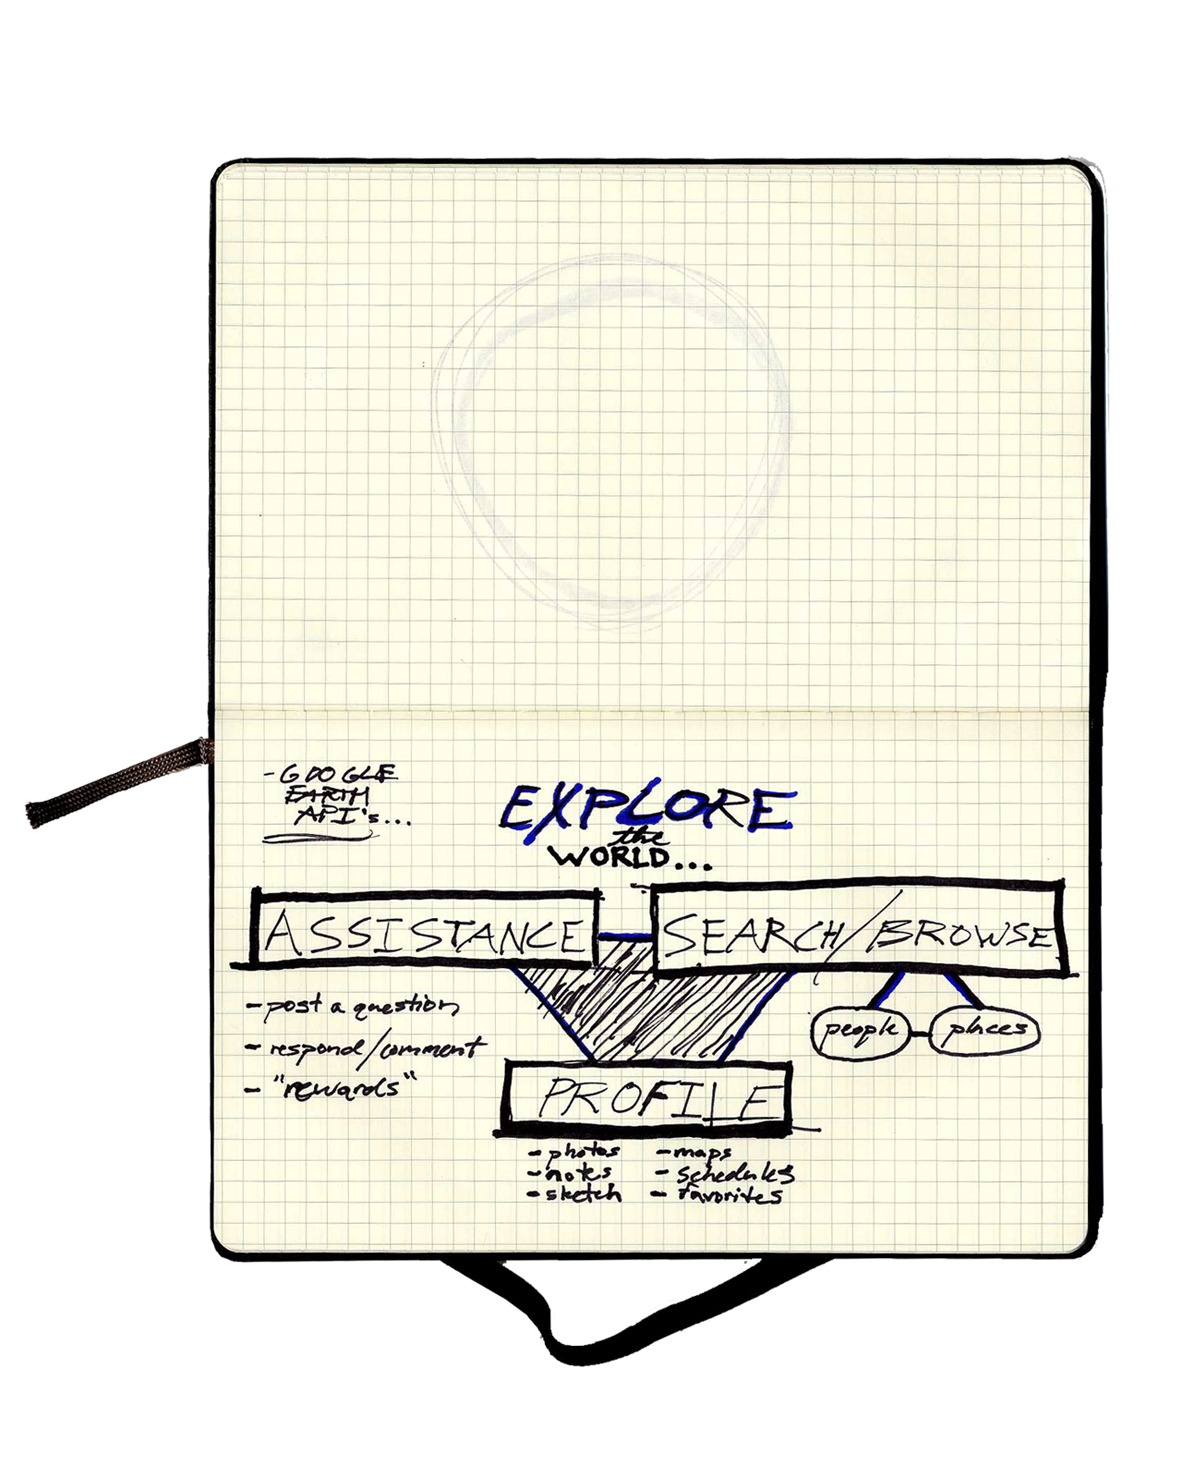 - GOOGLE
EARTH
API's...
EXPLORE
the
WORLD...
ASSISTANCE
SEARCH/BROWSE
- post a question
- respond/comment
- "rewards"
people
places
PROFILE
- photos
- notes
- sketch
- maps
- schedules
- favorites